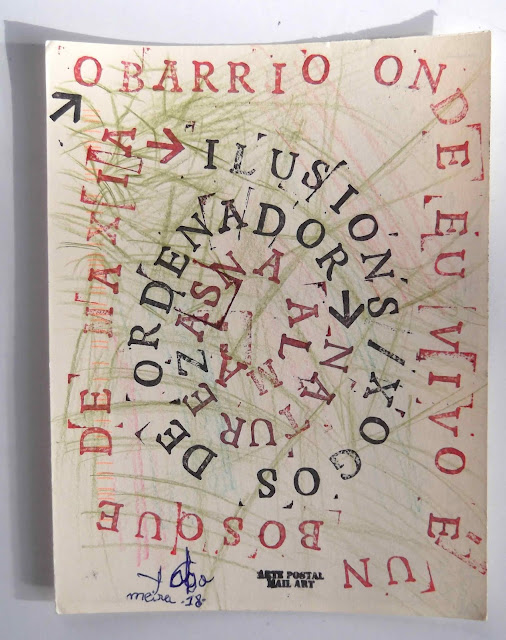 O BARRIO ONDE EU VIVO É UN BOSQUE DE MAXIA
ILUSIONS/XOGOS DE ORDENADOR
NATUREZAS NA ALMA
meira .18.
ARTE POSTAL
MAIL ART